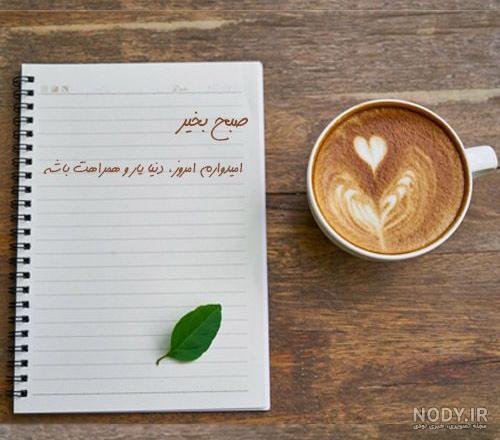 صبح بخیر
امیدوارم امروز، دنیا یار و همراهت باشه
NODY.IR
مجله تصویری، خبری نودی